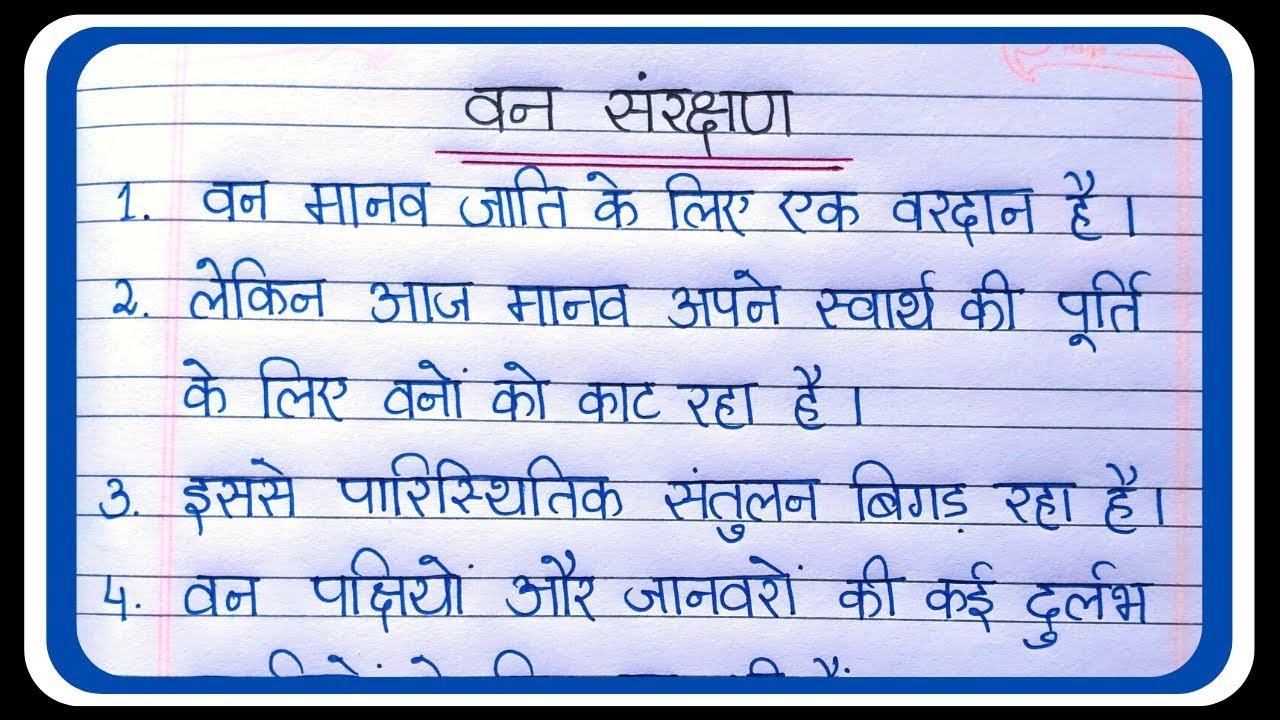 वन संरक्षण
1. वन मानव जाति के लिए एक वरदान है।
2. लेकिन आज मानव अपने स्वार्थ की पूर्ति
के लिए वनों को काट रहा है।
3. इससे पारिस्थितिक संतुलन बिगड़ रहा है।
4. वन पक्षियों और जानवरों की कई दुर्लभ